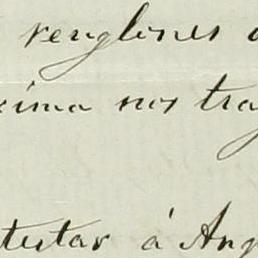 renglones
xima nos tra
testar á Ang